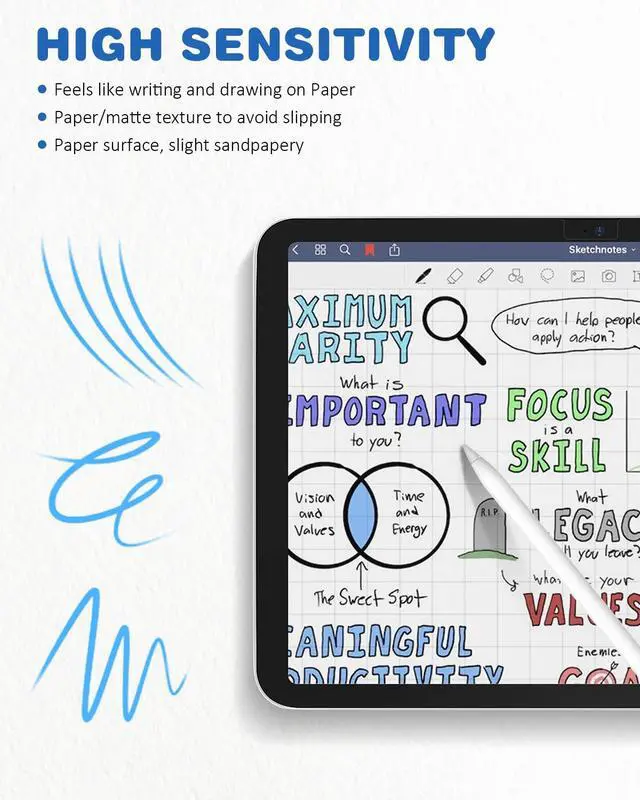 HIGH SENSITIVITY
Feels like writing and drawing on Paper
Paper/matte texture to avoid slipping
Paper surface, slight sandpapery
Sketchnotes
AXIMUM
ARITY
How can I help people
apply action?
What is
IMPORTANT
to you?
FOCUS
is a
SKILL
Vision
and
Values
Time
and
Energy
R.I.P
What
LEGAC
ll you leave?
The Sweet Spot
what
your
VALUES
EANINGFUL
ODUCTIVITY
Enemie
GOA